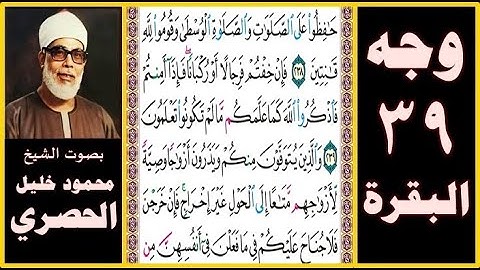 وجه
٣٩
البقرة
حَٰفِظُوا۟ عَلَى ٱلصَّلَوَٰتِ وَٱلصَّلَوٰةِ ٱلْوُسْطَىٰ وَقُومُوا۟ لِلَّهِ
قَٰنِتِينَ ﴿٢٣٨﴾ فَإِنْ خِفْتُمْ فَرِجَالًا أَوْ رُكْبَانًا ۖ فَإِذَآ أَمِنتُمْ
فَٱذْكُرُوا۟ ٱللَّهَ كَمَا عَلَّمَكُم مَّا لَمْ تَكُونُوا۟ تَعْلَمُونَ
﴿٢٣٩﴾ وَٱلَّذِينَ يُتَوَفَّوْنَ مِنكُمْ وَيَذَرُونَ أَزْوَٰجًا وَصِيَّةً
لِّأَزْوَٰجِهِم مَّتَٰعًا إِلَى ٱلْحَوْلِ غَيْرَ إِخْرَاجٍ ۚ فَإِنْ خَرَجْنَ
فَلَا جُنَاحَ عَلَيْكُمْ فِى مَا فَعَلْنَ فِىٓ أَنفُسِهِنَّ مِن
بصوت الشيخ
محمود خليل
الحصري